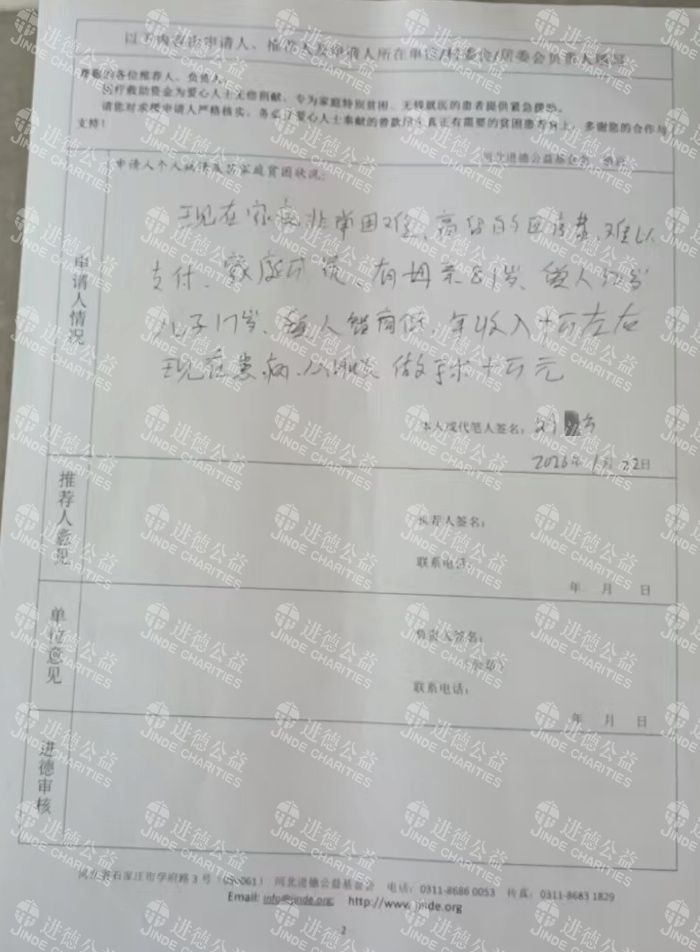 以下内容由申请人、推荐人及申请人所在单位/村委会/居委会负责人填写
尊敬的各位推荐人、负责人：
医疗救助资金为爱心人士无偿捐献，专为家庭特别贫困、无钱就医的患者提供紧急援助。
请您对求援申请人严格核实，务必让爱心人士奉献的善款用在真正有需要的贫困患者身上，多谢您的合作与
支持！
河北进德公益基金会
申请人情况
申请人个人病情及其家庭贫困状况：
现在家庭非常困难、高昂的医疗费、难以
支付、家庭成员、有母亲81岁、
儿子17岁、年收入十万左右
现在患病、做手术十万元
本人或代笔人签名：刘
2026年1月22日
推荐人意见
推荐人签名：
联系电话：
年 月 日
单位意见
负责人签名：
联系电话：
年 月 日
进德审核
河北省石家庄市学府路3号（050061） 河北进德公益基金会 电话：0311-8686 0053 传真：0311-8683 1829
Email: info@jinde.org http://www.jinde.org
2
进德公益
JINDE CHARITIES